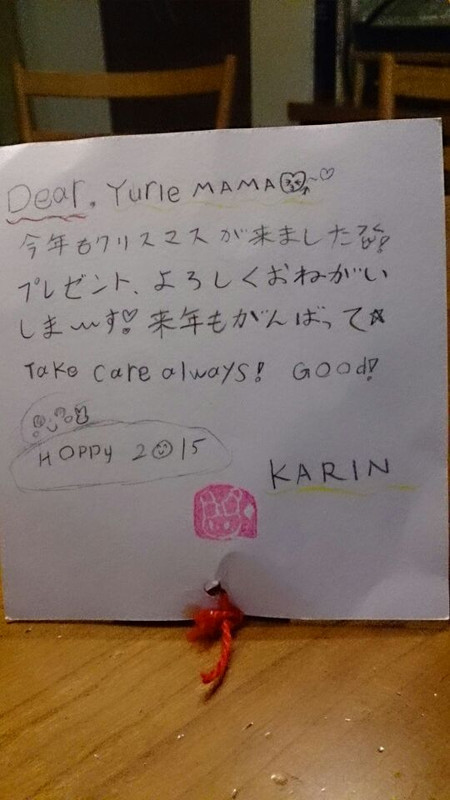 Dear. Yurie MAMA
今年もクリスマスが来ました!
プレゼント、よろしくおねがい
しま〜す! 来年もがんばって☆
Take care always! Good!
HOPPY 2015
KARIN